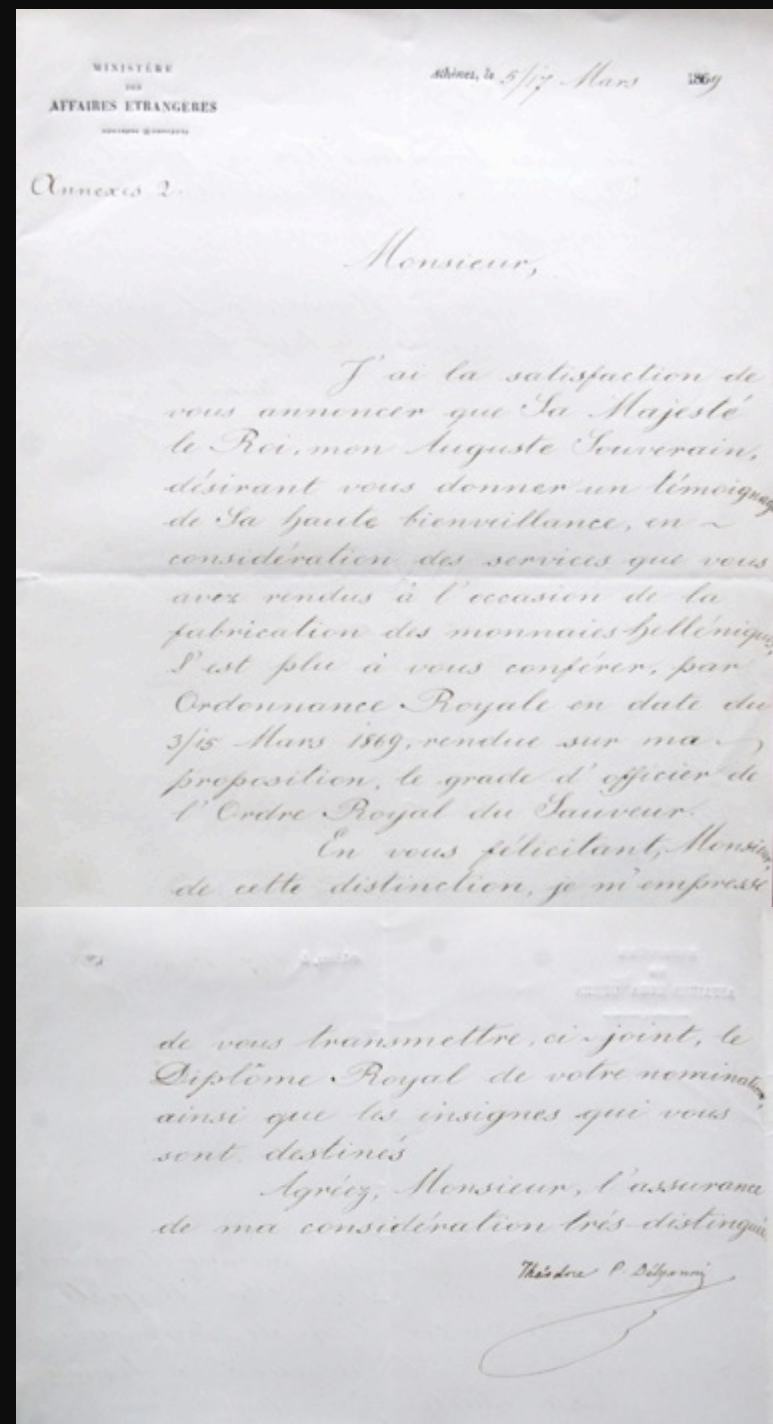 MINISTÈRE
DES
AFFAIRES ETRANGÈRES
Athènes, le 5/17 Mars 1869
Annexes 2.
Monsieur,
J'ai la satisfaction de
vous annoncer que Sa Majesté
le Roi, mon Auguste Souverain,
désirant vous donner un témoignage
de Sa haute bienveillance, en
considération des services que vous
avez rendus à l'occasion de la
fabrication des monnaies helléniques,
S'est plu à vous conférer, par
Ordonnance Royale en date du
3/15 Mars 1869, rendue sur ma
proposition, le grade d'officier de
l'Ordre Royal du Sauveur.
En vous félicitant, Monsieur,
de cette distinction, je m'empresse
de vous transmettre, ci-joint, le
Diplôme Royal de votre nomination,
ainsi que les insignes qui vous
sont destinés
Agréez, Monsieur, l'assurance
de ma considération très-distinguée
Théodore P. Délyanni